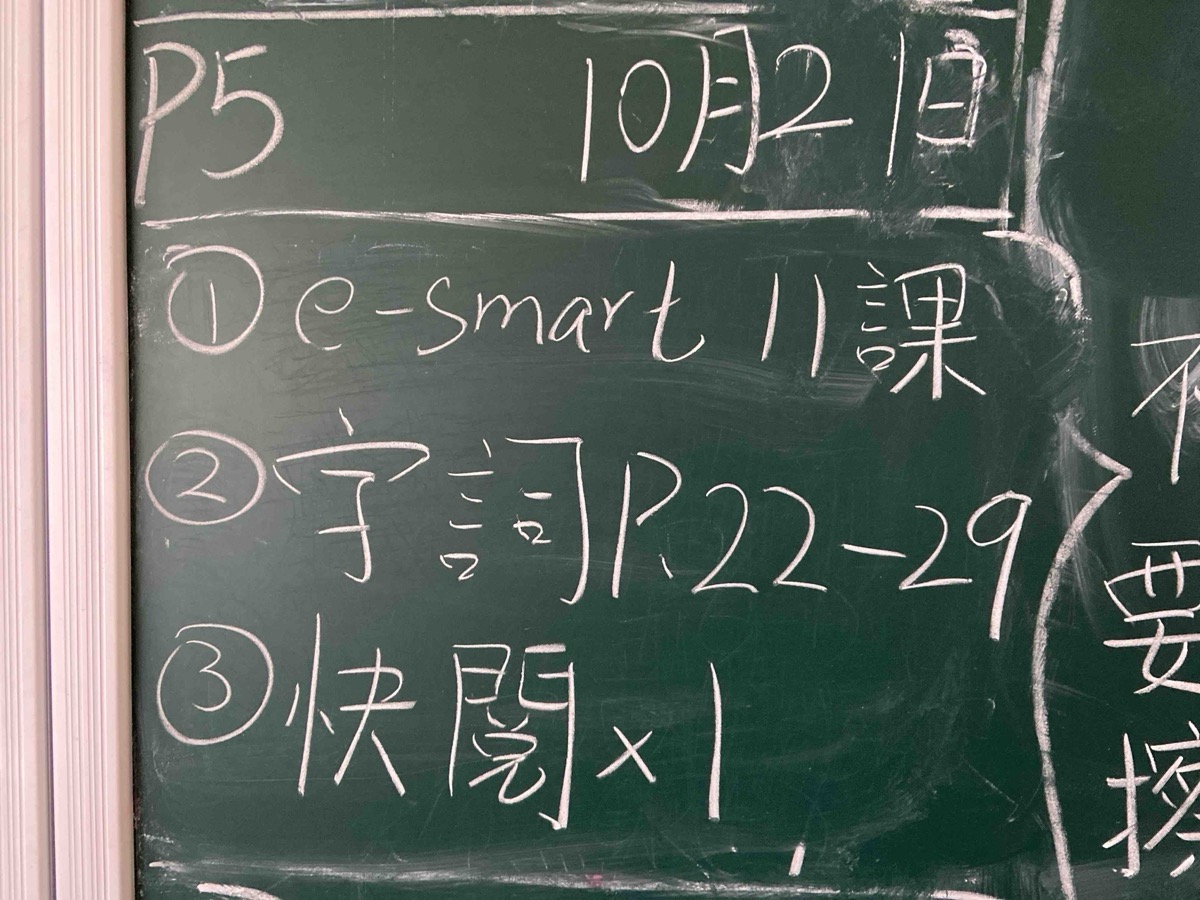 P5 10月21日
① e-smart 11課
② 字詞 P.22-29
③ 快閱×1
不
要
擦